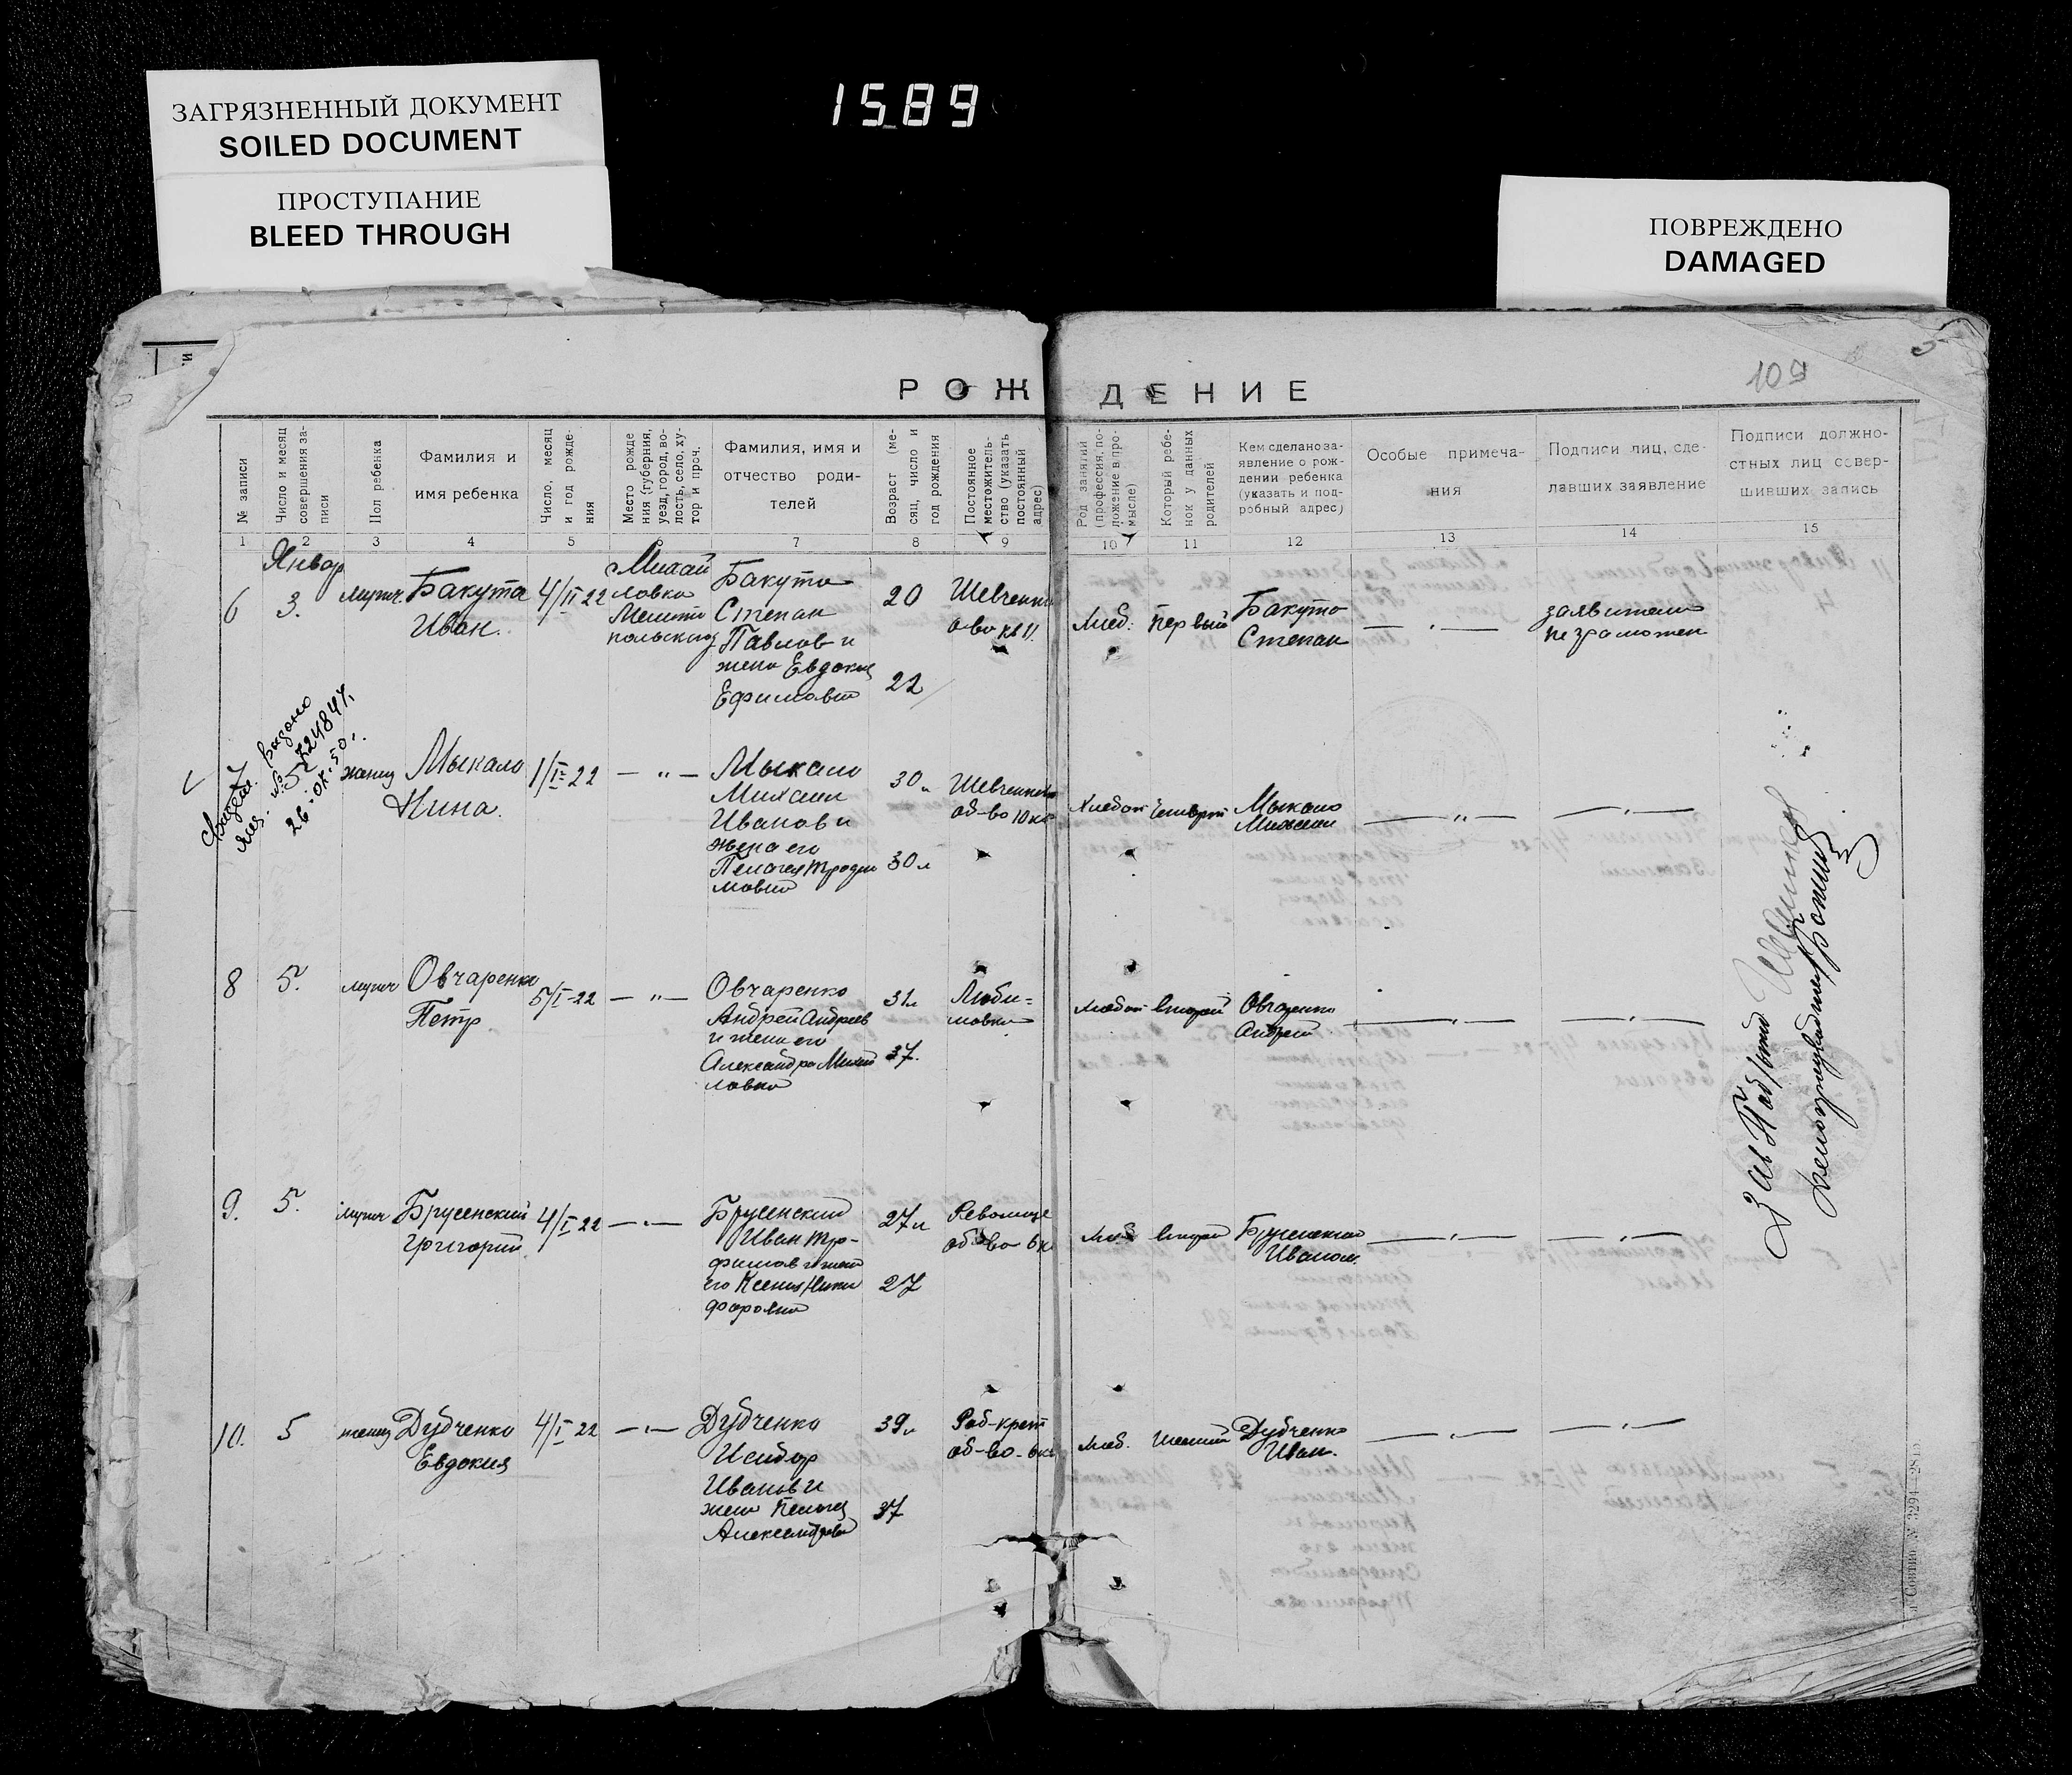 ЗАГРЯЗНЕННЫЙ ДОКУМЕНТ
SOILED DOCUMENT
ПРОСТУПАНИЕ
BLEED THROUGH
1589
ПОВРЕЖДЕНО
DAMAGED
109
РОЖДЕНИЕ
№ записи
Число и месяц
совершения за-
писи
Пол ребенка
Фамилия и
имя ребенка
Число, месяц
и год рожде-
ния
Место рожде
ния (губерния,
уезд, город, во-
лость, село, ху-
тор и проч.
Фамилия, имя и
отчество роди-
телей
Возраст (ме-
сяц, число и
год рождения
Постоянное
местожитель-
ство (указать
постоянный
адрес)
Род занятий
(профессия, по-
ложение в про-
мысле)
Который ребе-
нок у данных
родителей
Кем сделано за-
явление о рож-
дении ребенка
(указать и под-
робный адрес)
Особые примеча-
ния
Подписи лиц, сде-
лавших заявление
Подписи должно-
стных лиц совер-
шивших запись
1 2 3 4 5 6 7 8 9 10 11 12 13 14 15
Январ
6 3.
Бакута
Иван.
4/II 22
Михай
ловка
Мелито
польский
Бакута
Степан
Павлов и
жена Евдокия
Ефимовна
20
22
Шевченко
о-во кв 11.
Хлеб.
первый
Бакуто
Степан
— " —
заявитель
неграмотен
7
выдано
№ 5724847.
26-IX-50.
женщ
Мыкало
Нина.
1/I-22
— " —
Мыкало
Михаил
Иванов и
жена его
Пелагея Трофи
мовна
30л
30л
Шевченко
об-во 10 кв
Хлебоп
Четверт
Мыкало
Михаил
— " —
— " —
8 5.
мужч
Овчаренко
Петр
5/I-22
— " —
Овчаренко
Андрей Андреев
и жена его
Александра Михай
ловна
31л
37.
Люби-
мовка
Хлебоп
второй
Овчаренко
Андрей
— " —
— " —
9. 5.
мужч
Брусенский
Григорий
4/I-22
— " —
Брусенский
Иван Тро-
фимов и жена
его Ксения Ники
форовна
27л
27
Революц
об-во 6 к
Хлеб
второй
Брусенский
Иваном.
— " —
— " —
10. 5
женщ
Дудченко
Евдокия
4/I-22
— " —
Дудченко
Исидор
Иванов и
жена Пелагея
Александровна
39л
37
Раб-крест
об-во-6 кв
Хлеб.
Шестой
Дудченко
Иван.
— " —
— " —
Делопроизводитель